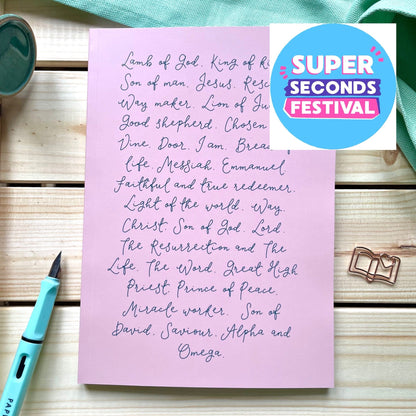 Lamb of God. King of
Son of man. Jesus.
Way maker. Lion of
Good shepherd. Chosen
Vine. Door. I am.
life. Messiah. Emmanuel.
Faithful and true redeemer.
Light of the world. Way.
Christ. Son of God. Lord.
The Resurrection and The
Life. The Word. Great High
Priest. Prince of Peace.
Miracle worker. Son of
David. Saviour. Alpha and
Omega.
SUPER
SECONDS
FESTIVAL